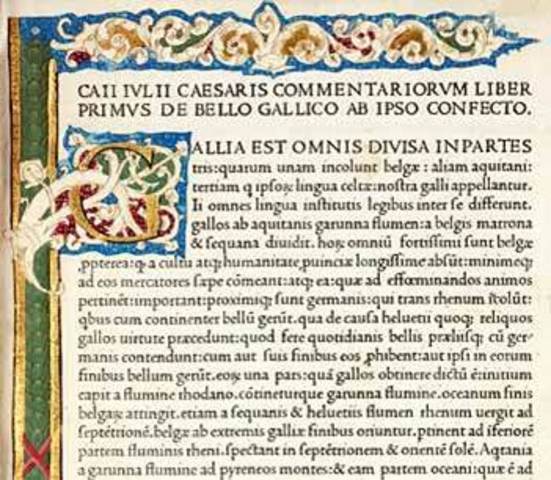 CAII IVLII CAESARIS COMMENTARIORVM LIBER
PRIMVS DE BELLO GALLICO AB IPSO CONFECTO.
GALLIA EST OMNIS DIVISA IN PARTES
tris: quarum unam incolunt belgæ: aliam aquitani:
tertiam q ipsoꝝ lingua celtæ: nostra galli appellantur.
Ii omnes lingua institutis legibus inter se differunt.
gallos ab aquitanis garunna flumen: a belgis matrona
& sequana diuidit. hoꝝ omniū fortissimi sunt belgæ
ꝓpterea: ꝙ a cultu atqꝫ humanitate ꝓuinciæ longissime absūt: minimeqꝫ
ad eos mercatores sæpe cōmeant: atqꝫ ea: quæ ad effœminandos animos
pertinēt: important: proximiqꝫ sunt germanis: qui trans rhenum īcolūt:
qbus cum continenter bellū gerūt. qua de causa heluetii quoqꝫ reliquos
gallos uirtute præcedunt: quod fere quotidianis bellis præliisqꝫ cū ger-
manis contendunt: cum aut suis finibus eos ꝓhibent: aut ipsi in eorum
finibus bellum gerūt. eoꝝ una pars: quā gallos obtinere dictū ē: initium
capit a flumine rhodano. cōtineturque garunna flumine. oceanum finis
belgaꝝ attingit. etiam a sequanis & heluetiis flumen rhenum uergit ad
septētrionē. belgæ ab extremis galliæ finibus oriuntur. ptinent ad īferiorē
partem fluminis rheni. spectant in septētrionem & orientē solē. Aqtania
a garunna flumine ad pyreneos montes: & eam partem oceani: quæ ē ad